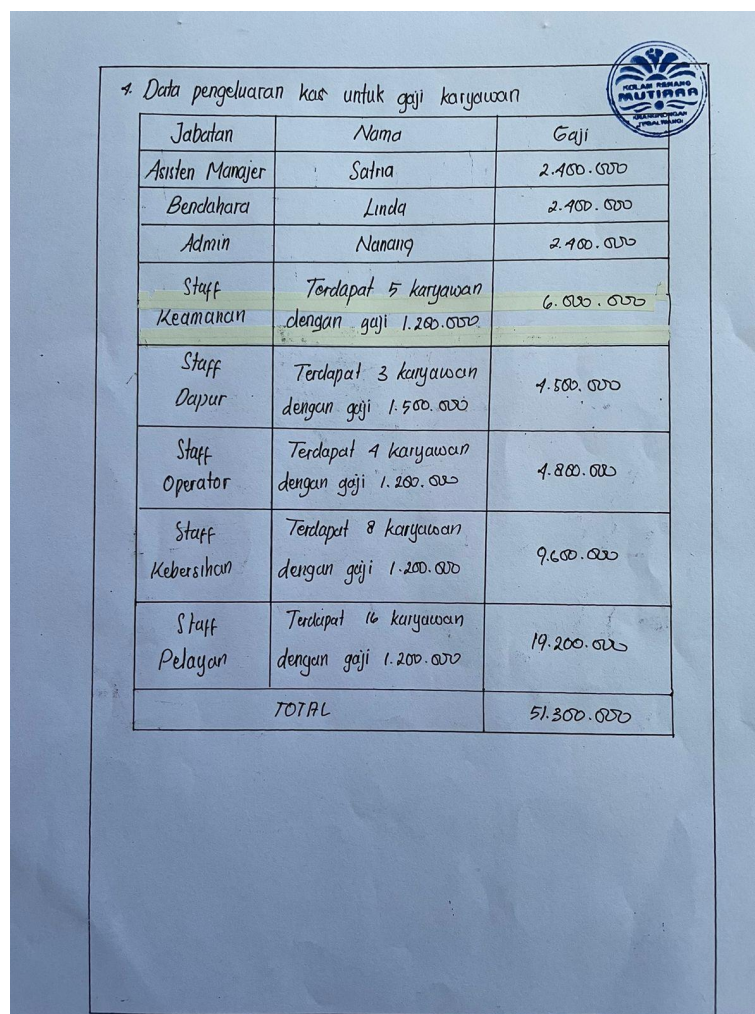 4. Data pengeluaran kas untuk gaji karyawan
KOLAM RENANG
MUTIARA
Jabatan Nama Gaji
Asisten Manajer Satria 2.400.000
Bendahara Linda 2.400.000
Admin Nanang 2.400.000
Staff Terdapat 5 karyawan
Keamanan dengan gaji 1.200.000 6.000.000
Staff Terdapat 3 karyawan
Dapur dengan gaji 1.500.000 4.500.000
Staff Terdapat 4 karyawan
Operator dengan gaji 1.200.000 4.800.000
Staff Terdapat 8 karyawan
Kebersihan dengan gaji 1.200.000 9.600.000
Staff Terdapat 16 karyawan
Pelayan dengan gaji 1.200.000 19.200.000
TOTAL 51.300.000